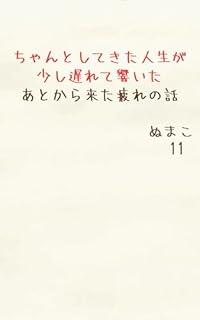 ちゃんとしてきた人生が
少し遅れて響いた
あとから来た疲れの話
ぬまこ
11